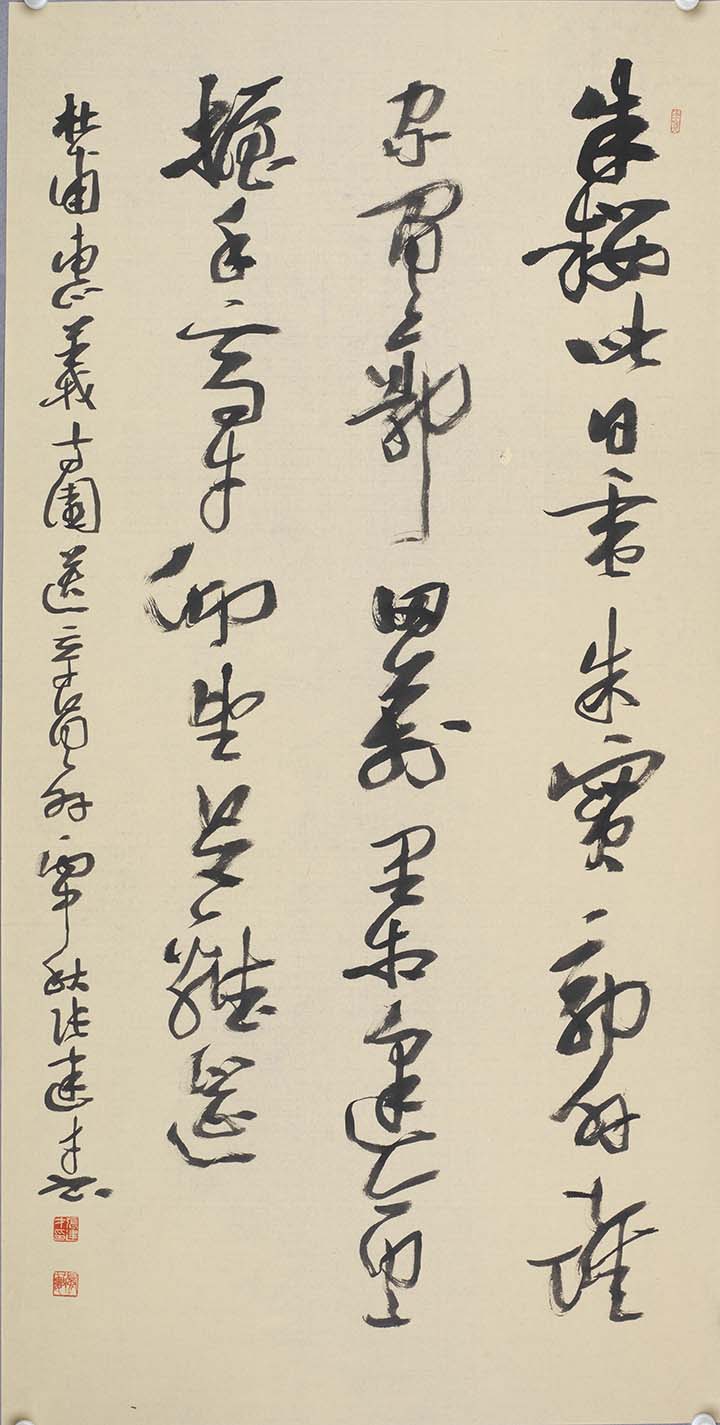 朱櫻此日垂朱實郭外誰
家負郭田萬里相逢貪
握手高才仰望足離筵
杜甫惠義寺園送辛員外 秋張建才書